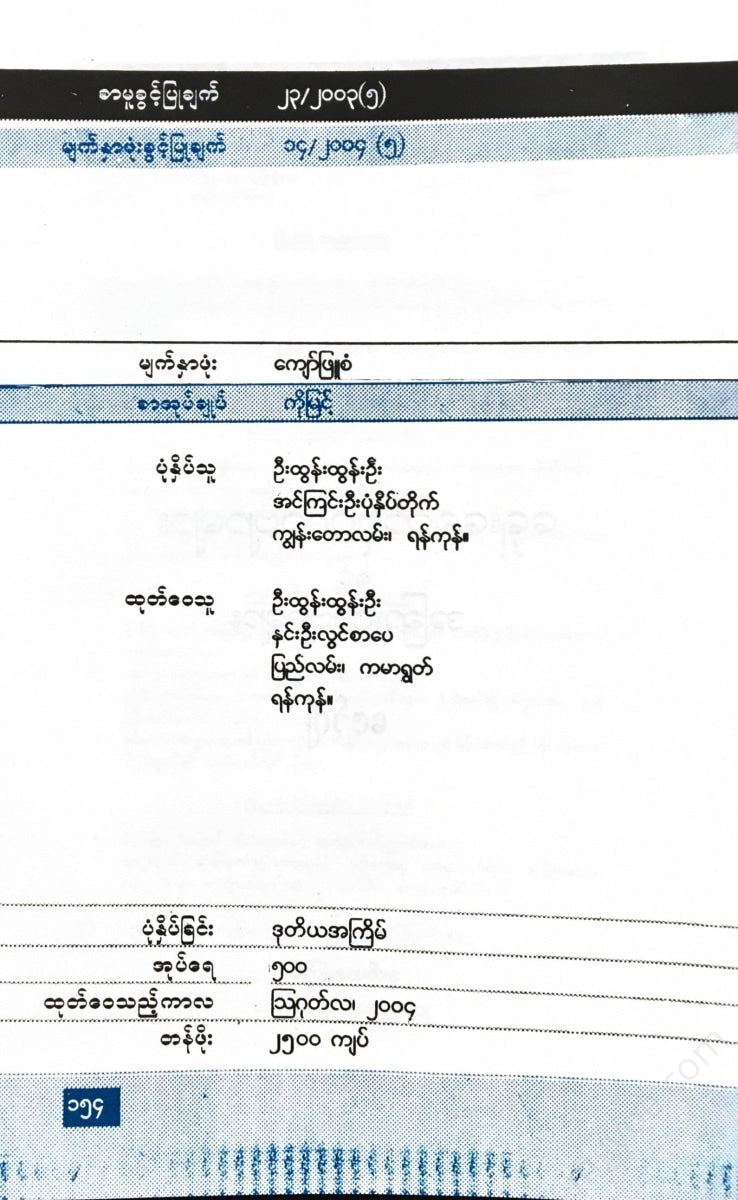 စာမူခွင့်ပြုချက် ၂၃/၂၀၀၃(၅)
မျက်နှာဖုံးခွင့်ပြုချက် ၁၄/၂၀၀၄ (၅)
မျက်နှာဖုံး ကျော်ဖြူစံ
စာအုပ်ချုပ် ကိုမြင့်
ပုံနှိပ်သူ ဦးထွန်းထွန်းဦး
အင်ကြင်းဦးပုံနှိပ်တိုက်
ကျွန်းတောလမ်း၊ ရန်ကုန်။
ထုတ်ဝေသူ ဦးထွန်းထွန်းဦး
နှင်းဦးလွင်စာပေ
ပြည်လမ်း၊ ကမာရွတ်
ရန်ကုန်။
ပုံနှိပ်ခြင်း ဒုတိယအကြိမ်
အုပ်ရေ ၅၀၀
ထုတ်ဝေသည့်ကာလ ဩဂုတ်လ၊ ၂၀၀၄
တန်ဖိုး ၂၅၀၀ ကျပ်
၁၅၄